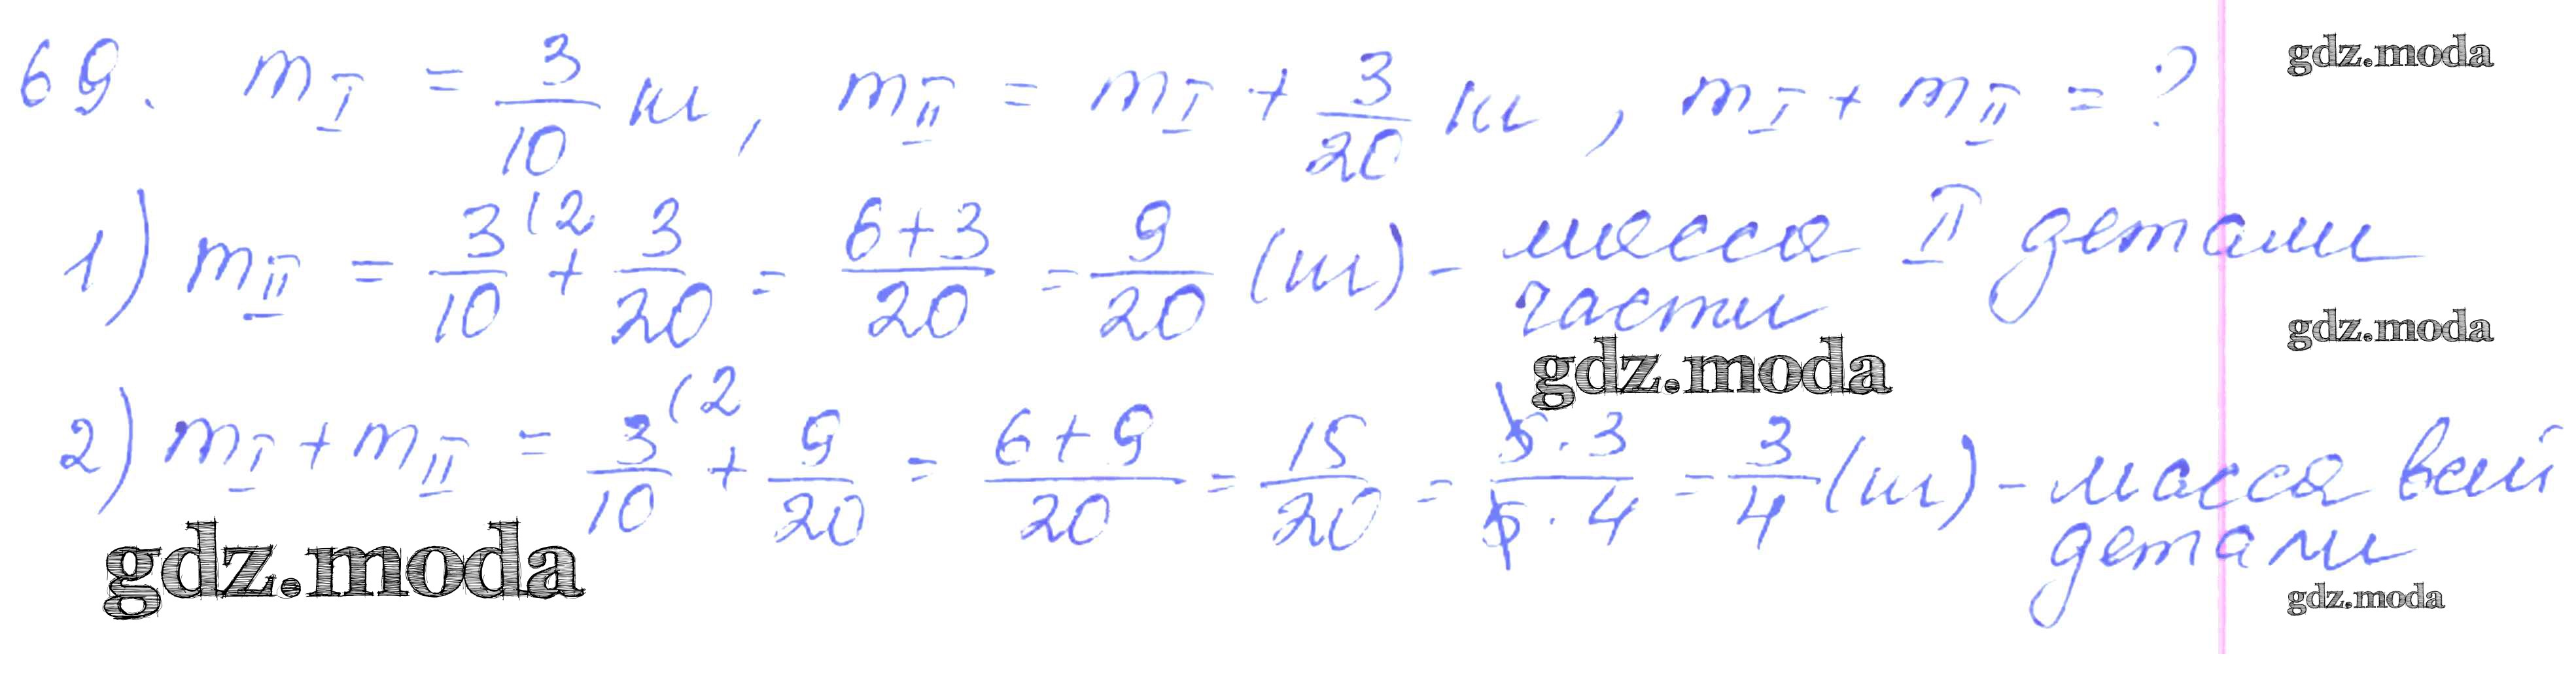 69. m_I = 3/10 кг, m_II = m_I + 3/20 кг, m_I + m_II = ?
gdz.moda
1) m_II = 3/10 (2 + 3/20 = 6+3/20 = 9/20 (кг) - масса II детали
части
gdz.moda
gdz.moda
2) m_I + m_II = 3/10 (2 + 9/20 = 6+9/20 = 15/20 = 5·3/5·4 = 3/4 (кг) - масса всей
детали
gdz.moda
gdz.moda